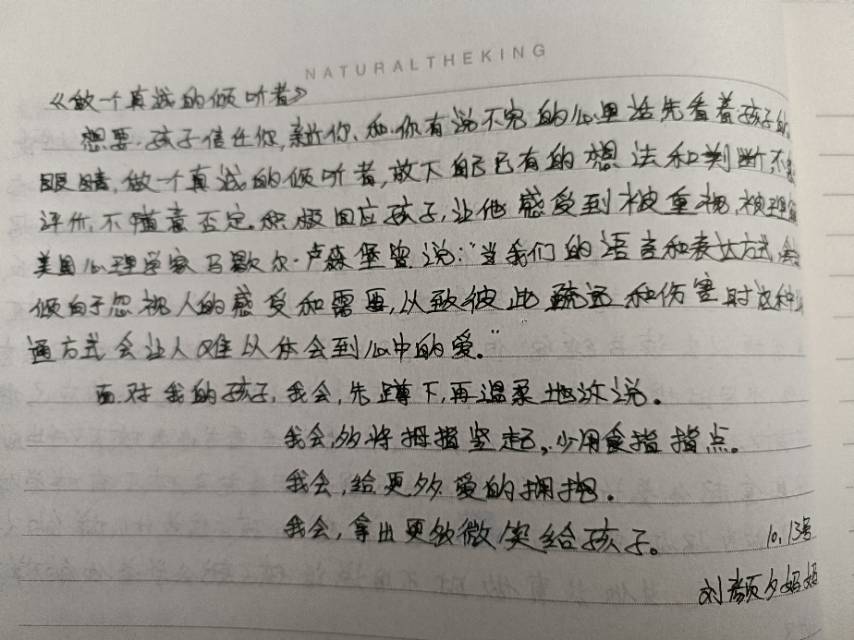 NATURALTHEKING
《做一个真诚的倾听者》
想要孩子信任你,亲近你、和你有说不完的心里话先看着孩子的
眼睛,做一个真诚的倾听者,放下自己已有的想法和判断,不
评价,不随意否定.积极回应孩子,让他感受到被重视,被理解
美国心理学家马歇尔·卢森堡曾说:“当我们的语言和表达方式会
倾向于忽视人的感受和需要,以致彼此疏远和伤害时这种
通方式会让人难以体会到心中的爱。”
面对我的孩子,我会,先蹲下,再温柔地沟说。
我会,多将拇指竖起,少用食指指点。
我会,给更多爱的拥抱.
我会,拿出更多微笑给孩子。
10.13号
刘颜夕妈妈